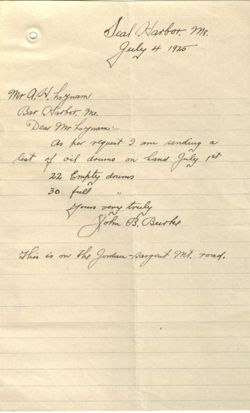 Seal Harbor, Me.
July 4 1925
Mr A. H. Lynam
Bar Harbor Me.
Dear Mr Lynam:-
As per request I am sending a
list of oil drums on hand July 1st
22 Empty drums
30 full "
Yours very truly
John B. Burke
This is on the Jordan-Sargent Mt. road.